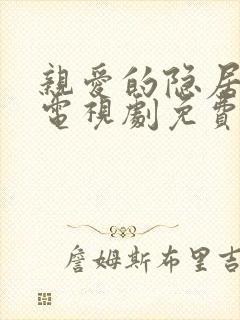 親愛的隐居
電視劇免費
詹姆斯布里吉